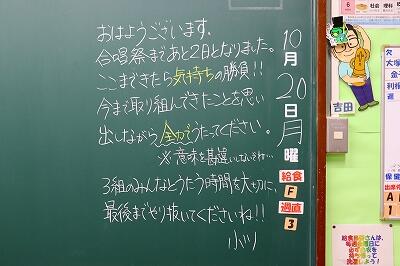 おはようございます。
合唱祭まであと2日となりました。
ここまできたら気持ちの勝負!!
今まで取り組んできたことを思い
出しながら全力でうたってください。
※意味を勘違いしないでね…
3組のみんなとうたう時間を大切に、
最後までやり抜いてくださいね!!
小川
10
月
20
日
月
曜
給食
F
週直
3
吉田
欠
大塚
金子
利根
遅
保健
出席
A
1
6
社会
理科
給食当番さんは、